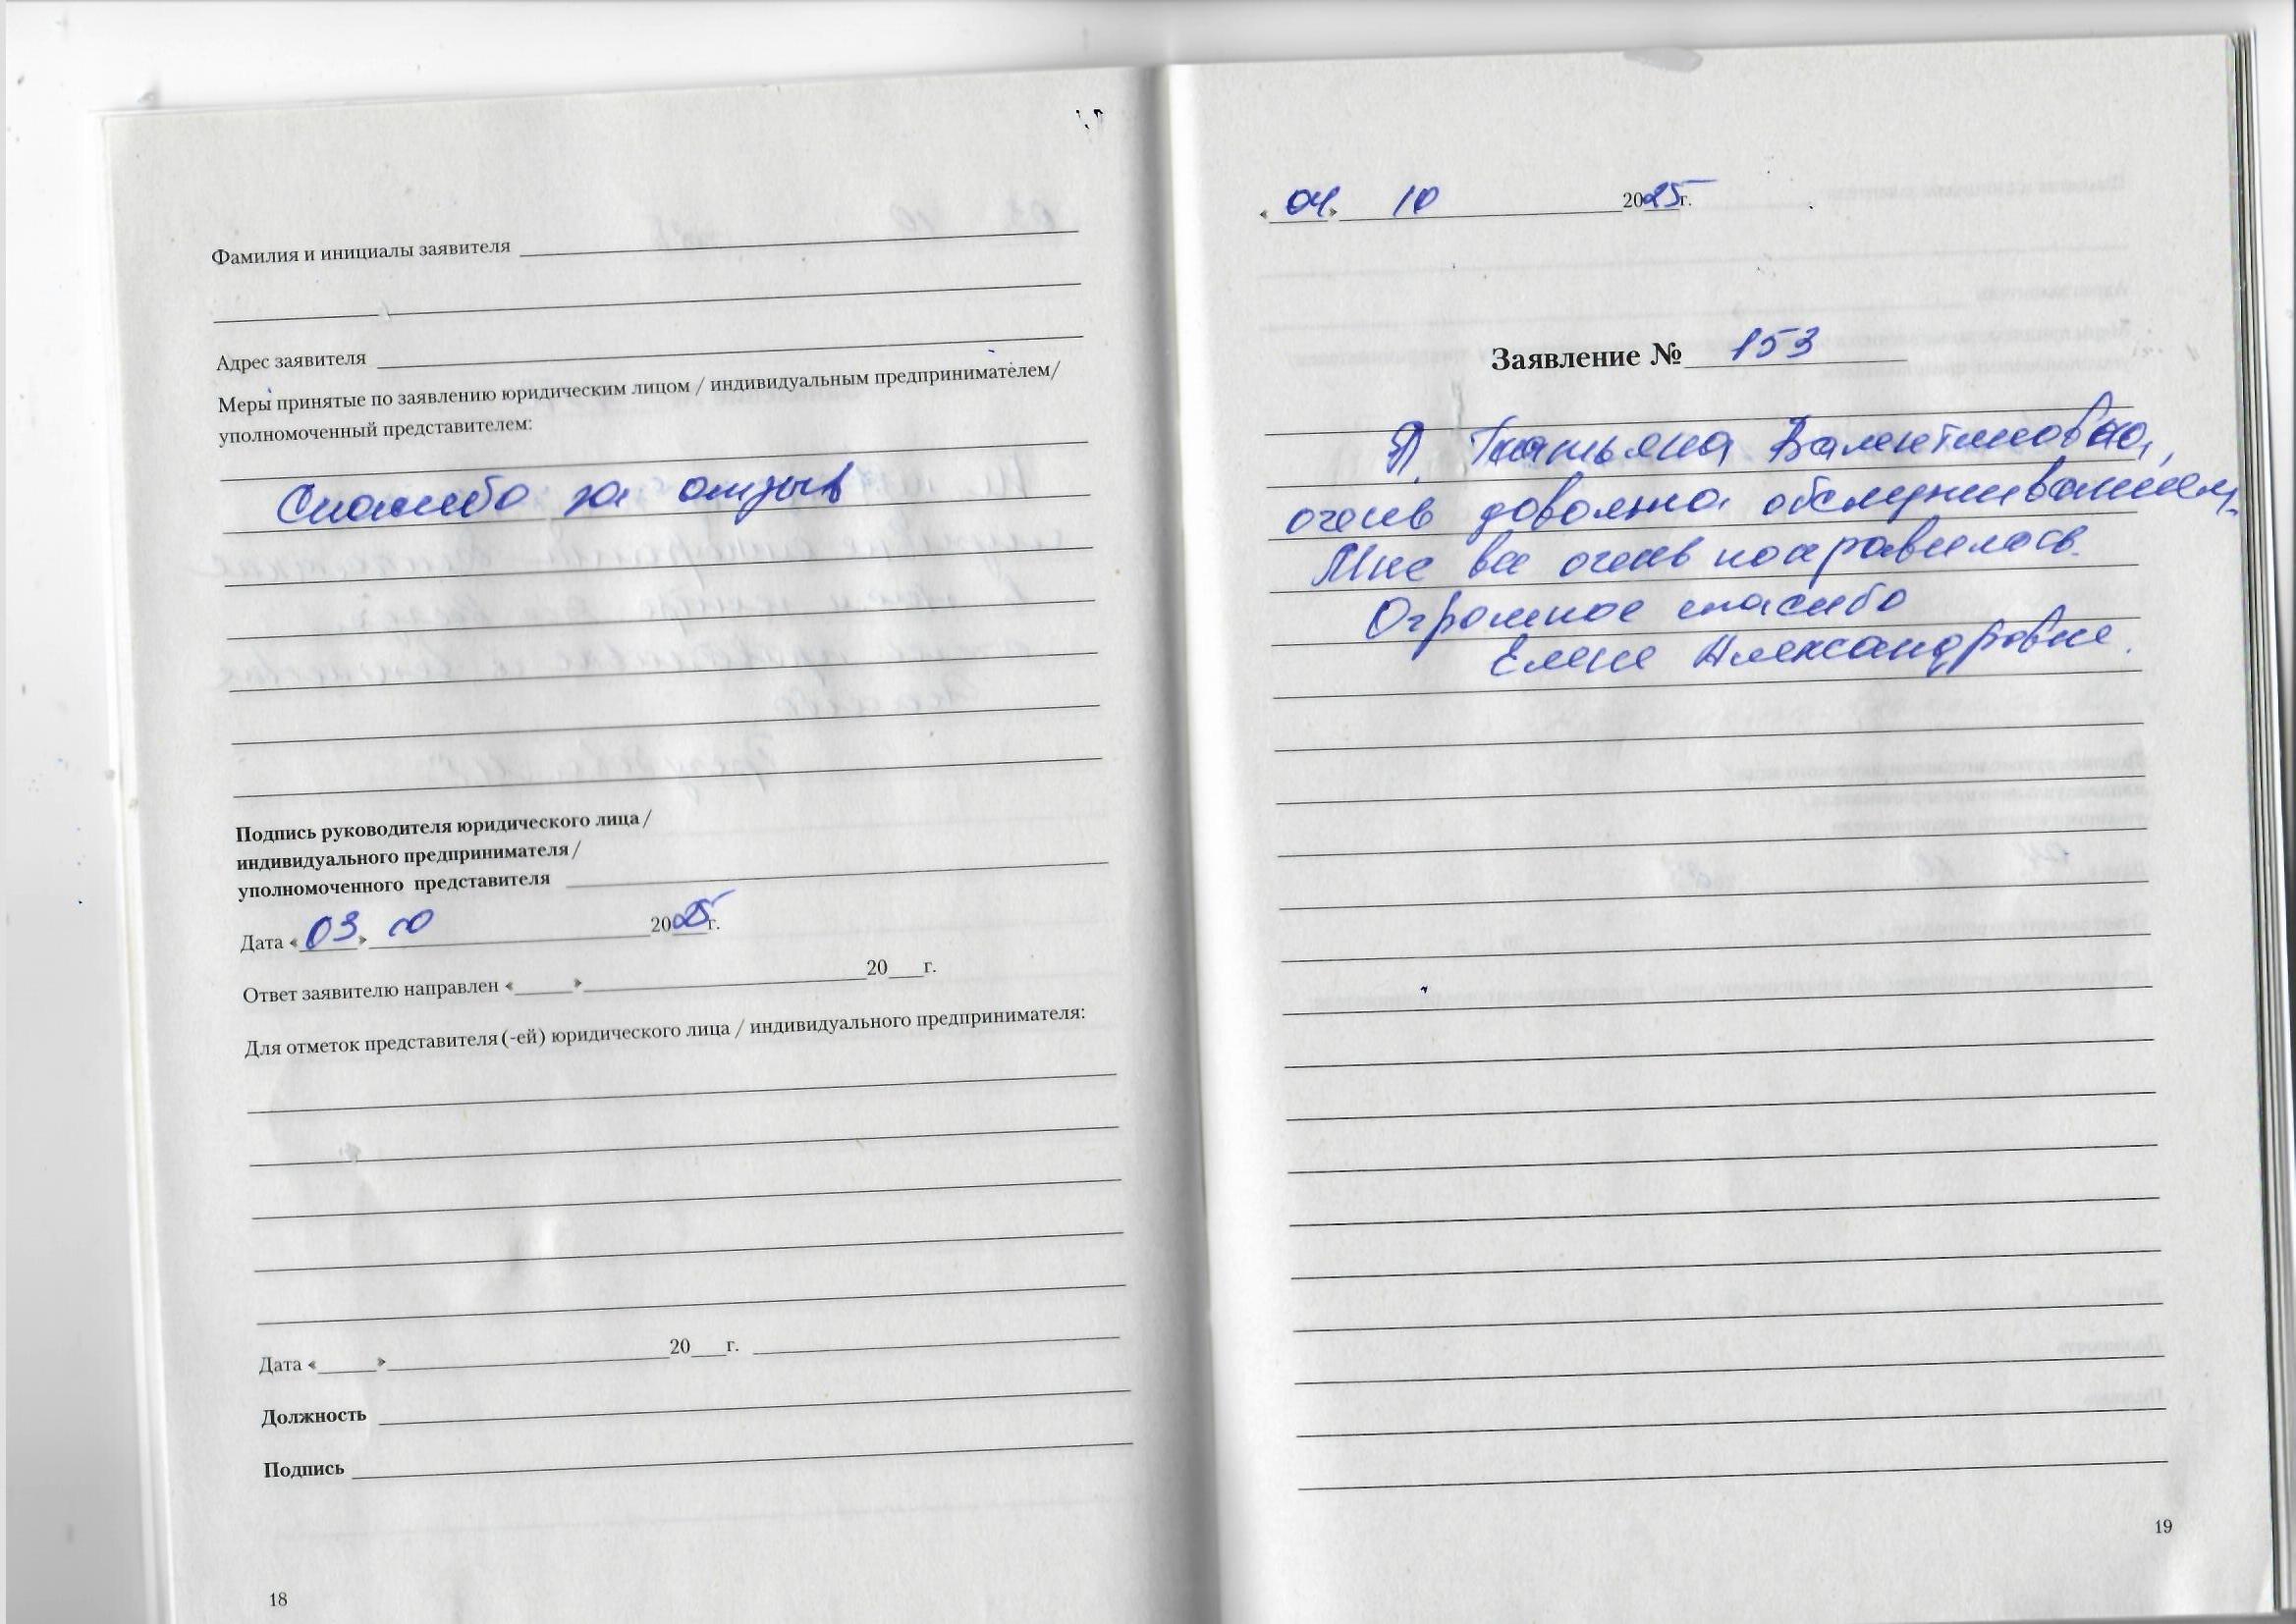 Фамилия и инициалы заявителя
Адрес заявителя
Меры принятые по заявлению юридическим лицом / индивидуальным предпринимателем/
уполномоченный представителем:
Спасибо за отзыв
Подпись руководителя юридического лица /
индивидуального предпринимателя /
уполномоченного представителя
Дата «03» 10 2025г.
Ответ заявителю направлен «    » 20    г.
Для отметок представителя (-ей) юридического лица / индивидуального предпринимателя:
Дата «    » 20    г.
Должность
Подпись
18
«04» 10 2025г.
Заявление № 153
Я, Татьяна Валентиновна,
очень довольна обслуживанием.
Мне все очень понравилось.
Огромное спасибо
Елене Александровне.
19